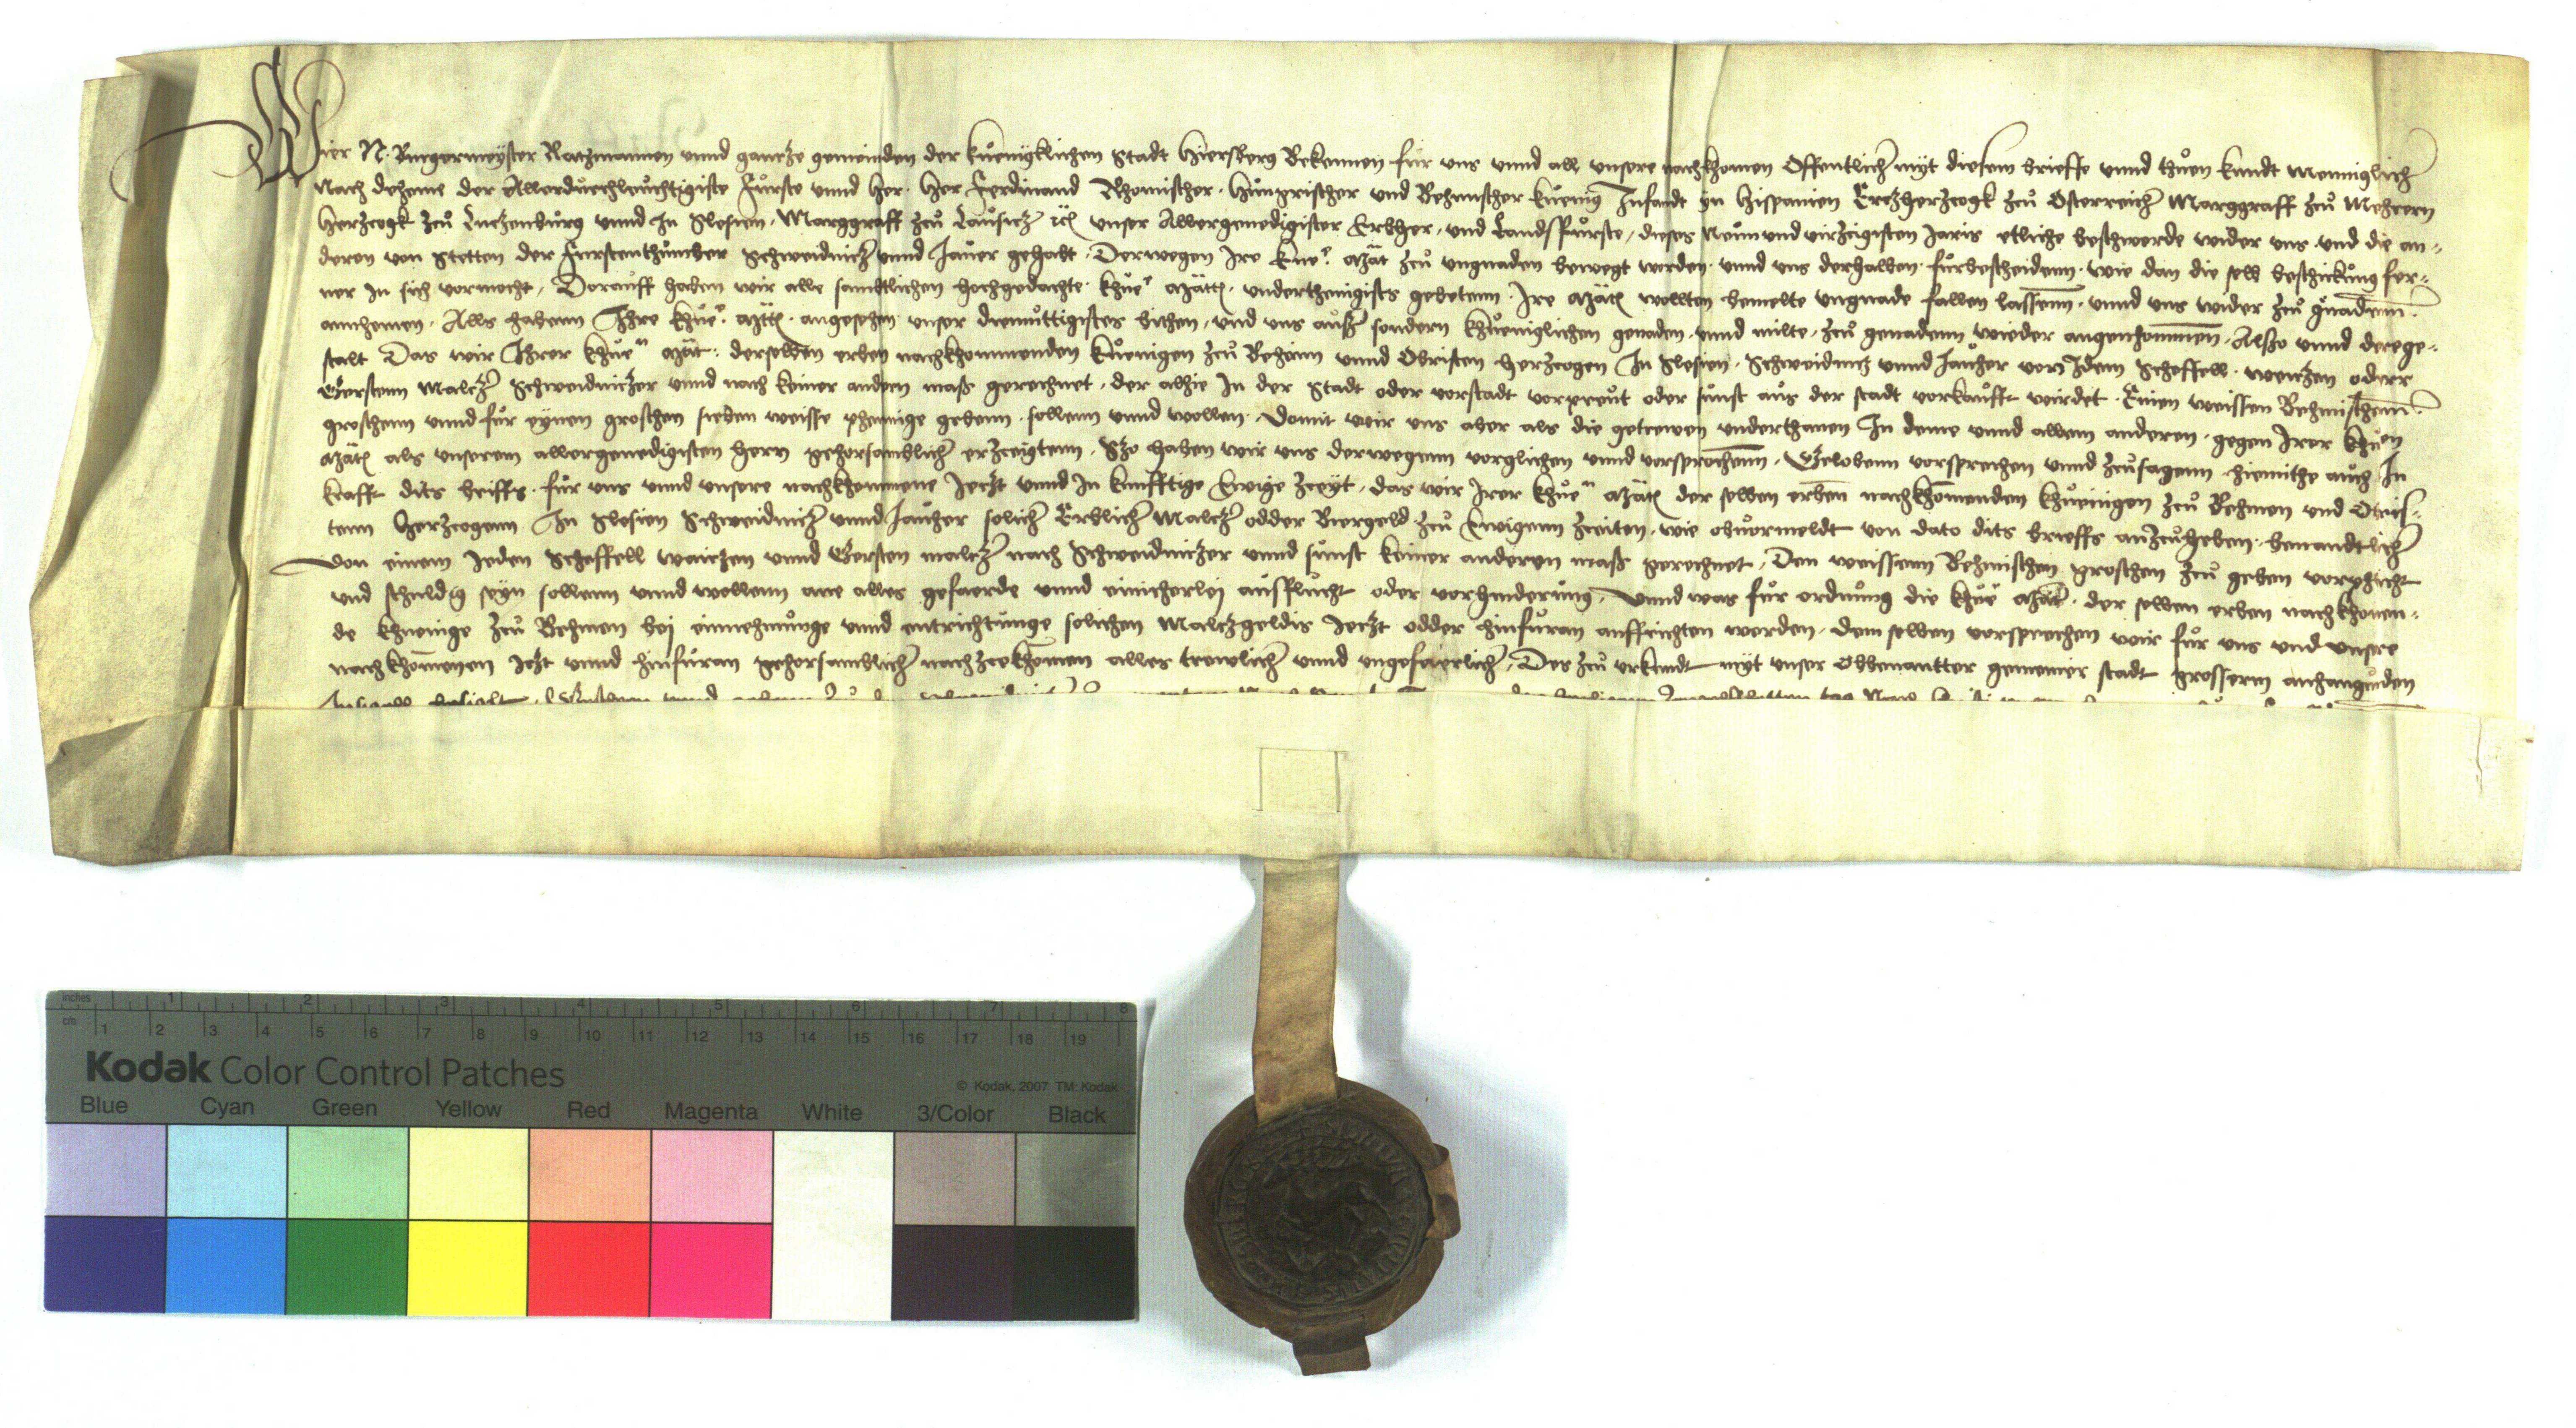 Wier N. Burgermeyster Ratzmannen vnnd gantze gemeinden der kuniglichen Stadt Hiersberg Bekennen fur vns vnnd all vnsere nachkhomen Offentlich myt diesem brieffe vnnd thuen kundt Menniglich
Nach deheme der Allerdurchleuchtigiste Furste vnnd Her. Her Ferdinand Rhomischer. Hungrischer vnd Behmischer kuenig Infandt yn Hispanien Ertzherzcogk zcu Osterreich Marggraff zcu Mehrern
Herzcogk zcu Lutzenburg vnnd In Slesien. Marggraff zcu Lausitz vnser Allergenedigister Erbher. vnd Landsfurste, dieses Neun vnd virzcigisten Jaris etliche beschwerde wider vns. vnd die an-
deren von Stetten der Furstenthumber Schweidnicz vnnd Jauer gehabt. Derwegen Ire kue. Mat zcu vngnaden bewegt worden. vnnd vns derhalben furbescheidenn. wie dan die selb beschickung fer-
ner In sich vormocht. Dorauff haben wir alle samktlichen hochgedachte. khue. Matt. vnderthenigists gebetenn. Ire Mat wollten bemelte vngnade fallen lassenn. vnnd vns wider zcu gnadenn.
annhemen. Alls habenn Ihre khue. Matt. angesehen vnser diemuttigistes bithen, vnd vns auss sondern khueniglichen genaden. vnnd milte. zcu genadenn wieder angenhommen. Also vnnd derege-
stalt Das wir Ihrer khuen Mat. derselben erben nachkhommenden kuenigen zcu Behaim vnnd Obristen Herzcogen In Slesien. Schweidnitz vnnd Jauher von Idem Scheffell. weitzen oderr
Gerstenn Malcz Schweidniczer vnnd nach keiner andern mass gerechnet. der alhie In der Stadt oder vorstadt vorpreut oder sunst aus der stadt vorkaufft wirdet. Einen weissen Behmischenn.
groschenn vnnd fur eynen groschen sieben weisse phennige gebenn. sollenn vnnd wollen. Domit wir vns aber als die getrewen vnderthanen In deme vnnd allem anderen. gegen Irer khuen
Mat als vnserem allergenedigisten hern gehorsamblich erzceigtenn. Szo haben wir vns derwegenn vorglichen vnnd vorsprochenn. Gelobenn vorsprechen vnnd zcusagenn hiemithe auch In
krafft dits briffs. fur vns vnnd vnsere nachkhommene Jetzt vnnd In kunfftige Ewige zceyt. das wir Irer khuen Mat der selben erben nachkhomenden khuenigen zcu Behmen vnd Obris-
tenn Herzcogenn In Slesien Schweidnicz vnnd Jauher solich Erblich Malcz odder Biergeld zcu Ewigenn zceiten. wie obuormeldt von dato dits brieffs anzcuheben. benandtlich
Von einem Jeden Scheffell waiczen vnnd Gersten malcz nach Schweidniczer vnnd sunst keiner anderen mass gerechnet. Den weissenn Behmischen groschen zcu geben vorphlicht
vnd schuldig seyn sollenn vnnd wollenn ane alles gefaerde vnnd einicherlej ausflucht oder vorhinderung. Vnnd was fur ordnung die khue Mat. der selben erben nachkhomen-
de khuenige zcu Behmen bej einnehmunge vnnd entrichtunge solichen Malczgeldis Jetzt odder hinfuran auffrichten werden. dem selben vorsprechen wir fur vns vnd vnsere
nachkhomenen Itzt vnnd hinfuran gehorsamblich nachzcekhomen alles trewlich vnnd vngefaerlich. Des zcu urkundt myt vnser Obbenantter gemeiner stadt grosserm anhangenden
inches
cm
1 2 3 4 5 6 7 8
1 2 3 4 5 6 7 8 9 10 11 12 13 14 15 16 17 18 19
Kodak Color Control Patches
© Kodak, 2007 TM: Kodak
Blue Cyan Green Yellow Red Magenta White 3/Color Black